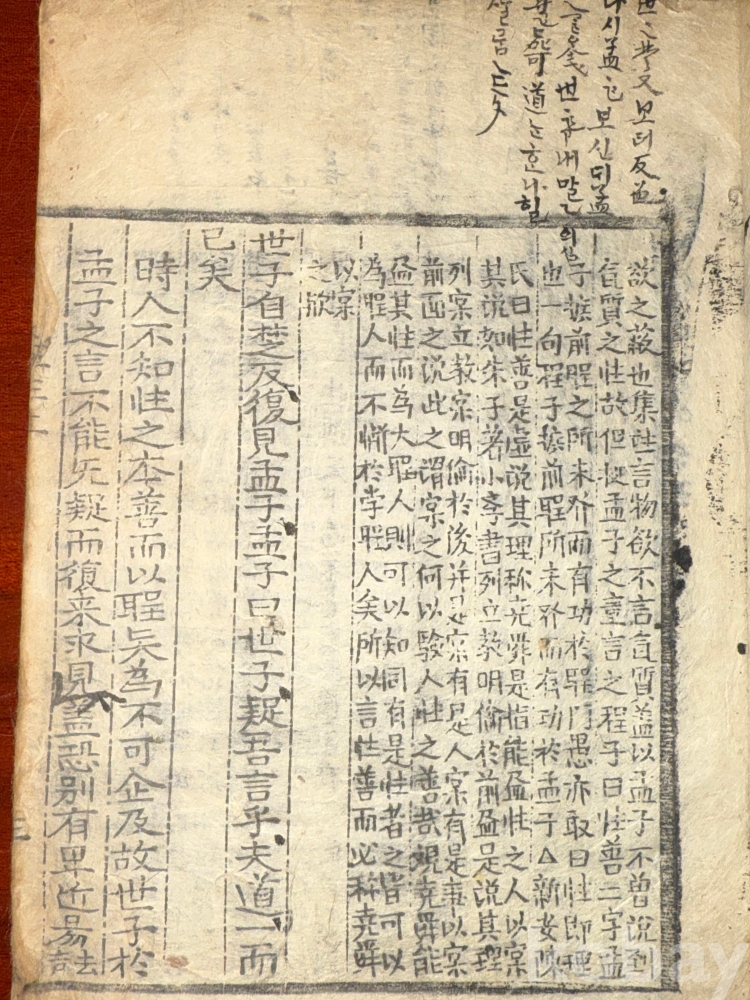 모디反
다시孟 보신디孟
世
道
欲之蔽也集註言物欲不言氣質盖以孟子不曾说到
氣質之性故但捉孟子之意言之程子曰性善二字孟
子擴前聖之所未發而有功於聖門愚亦取曰性即理
也一句程子擴前聖所未發而有功於孟子△新安陳
氏曰性善是虛说其理称尭舜是指能盡性之人以宲
其说如朱子著小孝書列立教明倫於前盡是说其理
列宲立教宲明倫於後并是宲有是人宲有是事以宲
前面之说此之謂宲之何以驗人性之善㢤覌尭舜能
盡其性而為大聖人則可以知同有是性者之皆可以
為聖人而不惰於孝聖人矣所以言性善而必称尭舜
以宲
之欤
世子自楚反復見孟子孟子曰世子疑吾言乎夫道一而
已矣
時人不知性之本善而以聖贤為不可企及故世子於
孟子之言不能无疑而復来求見盖恐別有卑近易